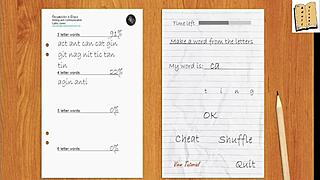 3 letter words 91%
act ant can cat gin
git nag nit tic tan
tin
4 letter words 22%
agin anti
5 letter words 0%
6 letter words 0%
Time left:
Make a word from the letters
My word is: ca
t i n g
OK
Cheat Shuffle
View Tutorial Quit